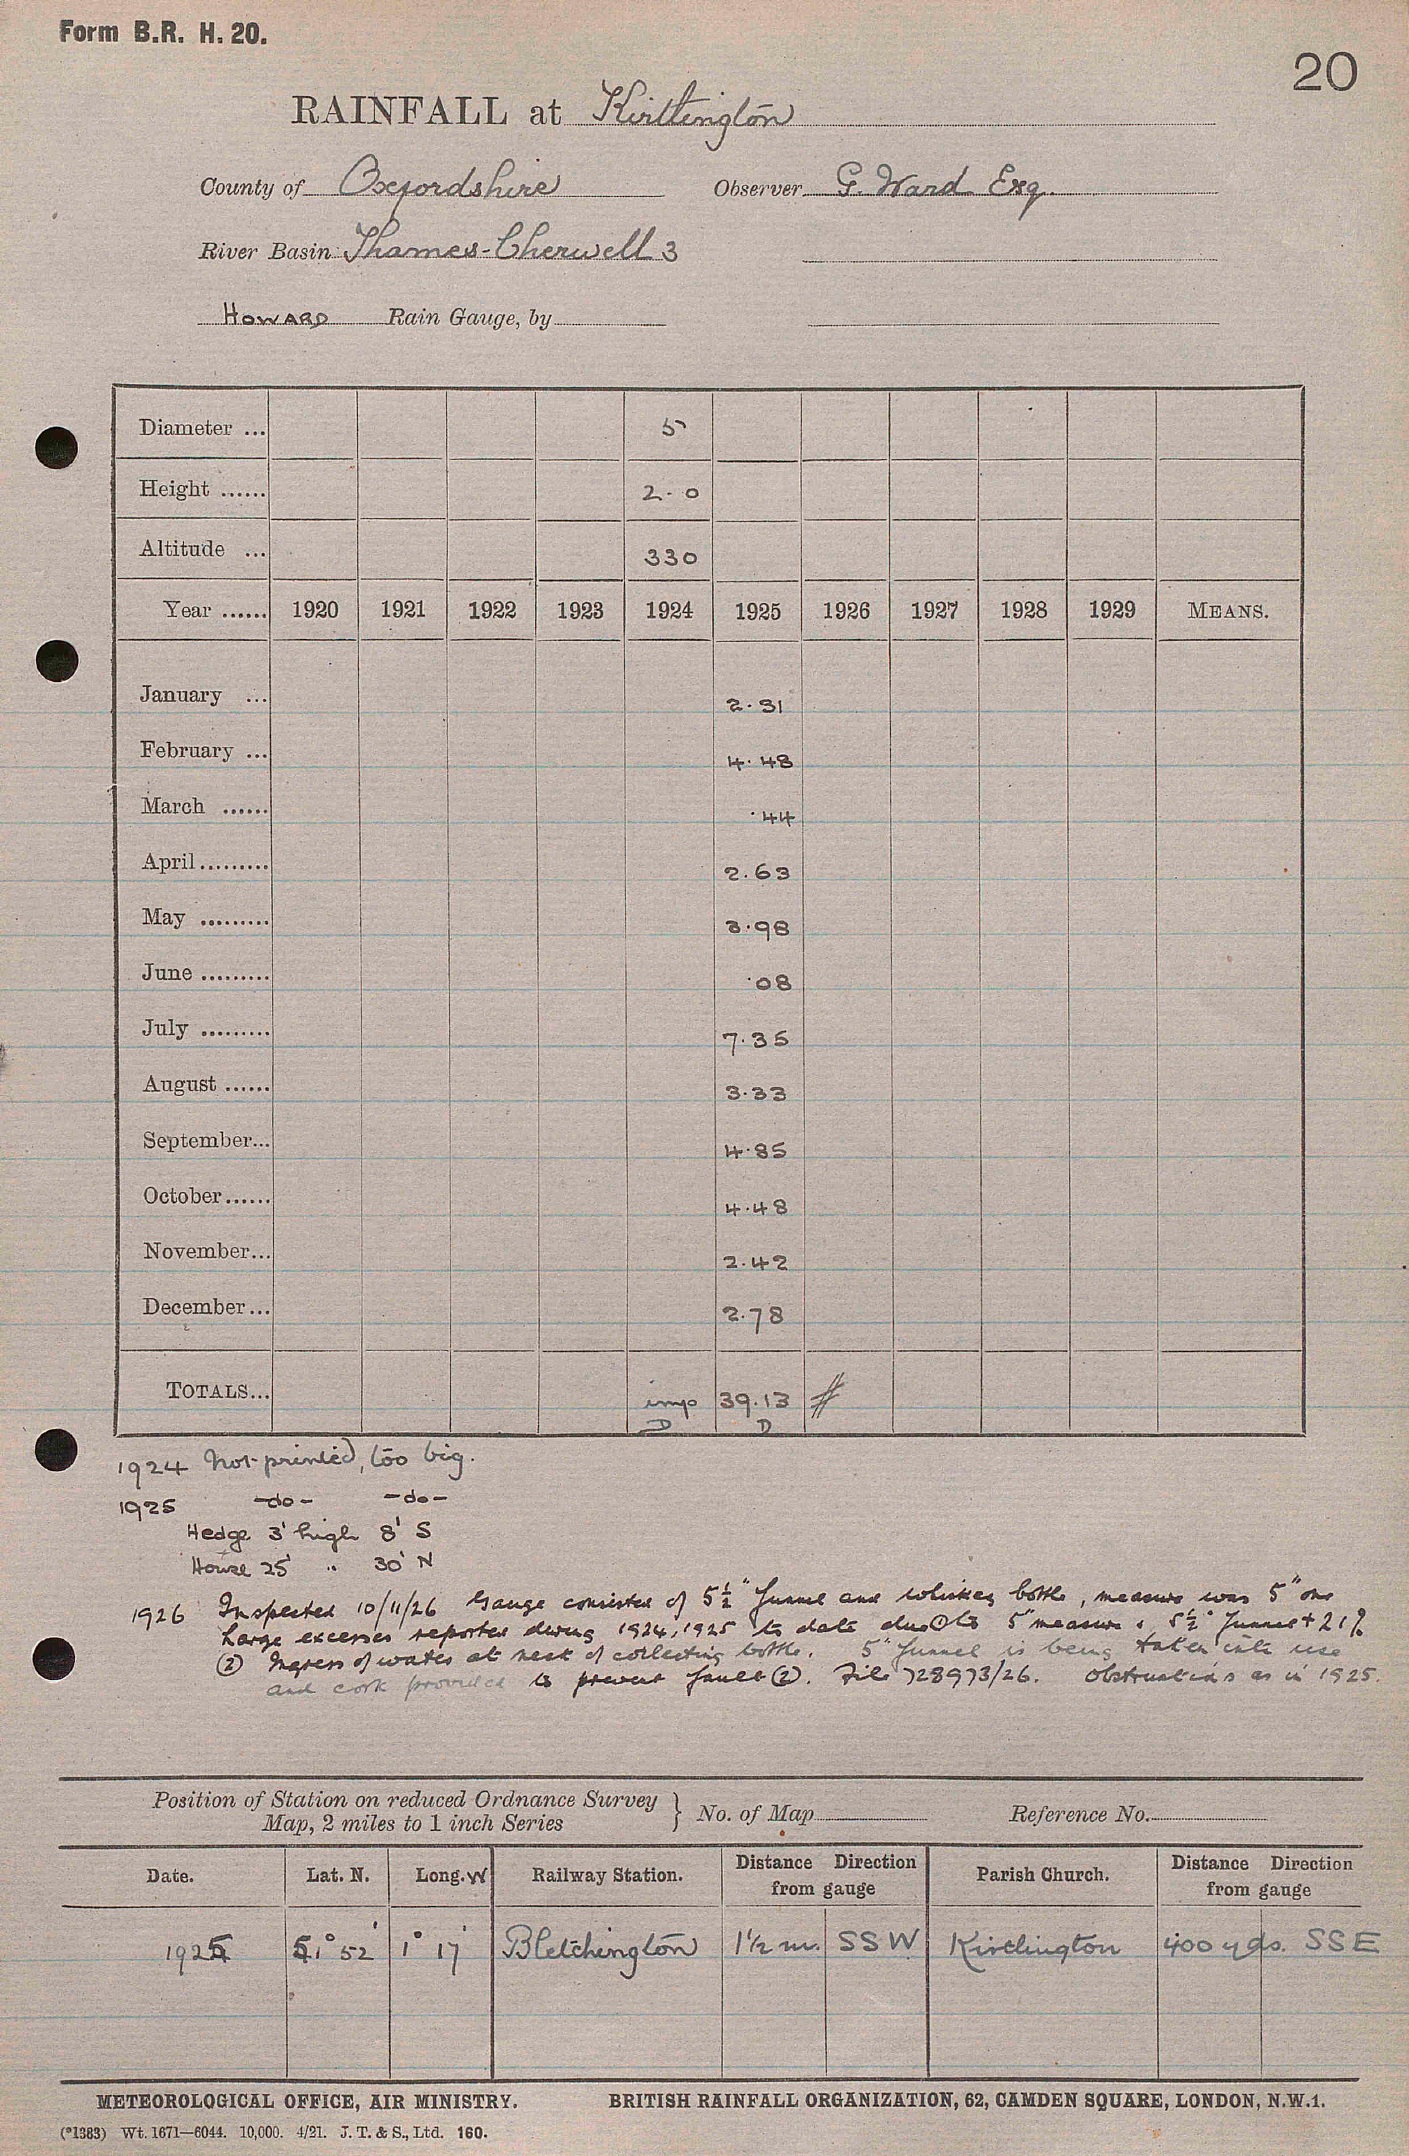 Form B.R. H. 20.
20
RAINFALL at Kirtlington
County of Oxfordshire Observer G. Ward Esq.
River Basin Thames-Cherwell 3
HOWARD Rain Gauge, by
Diameter ... 5
Height ...... 2.0
Altitude ... 330
Year ...... 1920 1921 1922 1923 1924 1925 1926 1927 1928 1929 MEANS.
January ... 2.31
February ... 4.48
March ...... .44
April ......... 2.63
May ......... 3.98
June ......... .08
July ......... 7.35
August ...... 3.33
September... 4.85
October...... 4.48
November... 2.42
December... 2.78
TOTALS... imp 39.13 #
D D
1924 Not printed, too big.
1925 -do- -do-
Hedge 3' high 8' S
House 25' " 30' N
1926 Inspected 10/11/26 Gauge consisted of 5½" funnel and whiskey bottle, measure was 5" one
Large excesses reported during 1924, 1925 to date due ① to 5" measure & 5½" funnel + 21%
② Ingress of water at neck of collecting bottle. 5" funnel is being taken into use
and cork provided to prevent fault ②. File 728973/26. Obstructions as in 1925.
Position of Station on reduced Ordnance Survey
Map, 2 miles to 1 inch Series } No. of Map Reference No.
Date. Lat. N. Long. W Railway Station. Distance Direction from gauge Parish Church. Distance Direction from gauge
1925 51° 52' 1° 17' Bletchington 1½ m. SSW Kirtlington 400 yds. SSE
METEOROLOGICAL OFFICE, AIR MINISTRY. BRITISH RAINFALL ORGANIZATION, 62, CAMDEN SQUARE, LONDON, N.W.1.
(*1383) Wt. 1671—6044. 10,000. 4/21. J. T. & S., Ltd. 160.